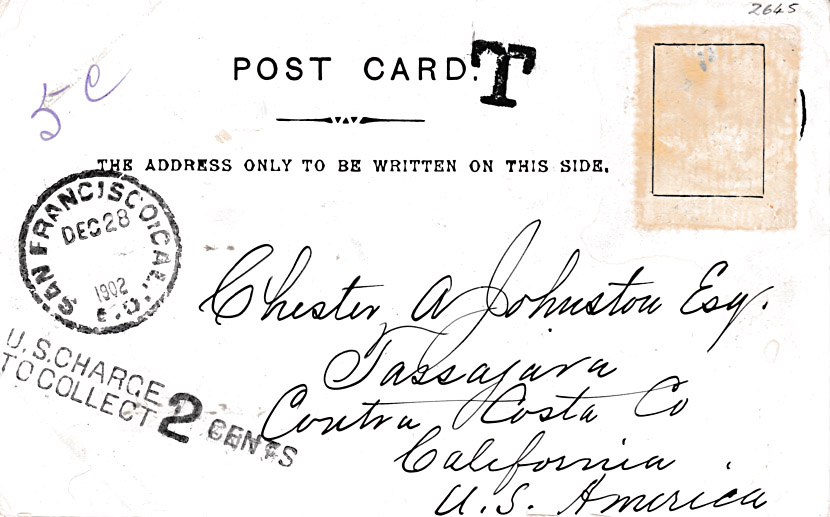 2645
POST CARD.
T
5c
THE ADDRESS ONLY TO BE WRITTEN ON THIS SIDE.
SAN FRANCISCO, CAL.
DEC 28
1902
Chester A Johnston Esq.
Tassajara
Contra Costa Co
California
U.S. America
U.S. CHARGE
TO COLLECT 2 CENTS